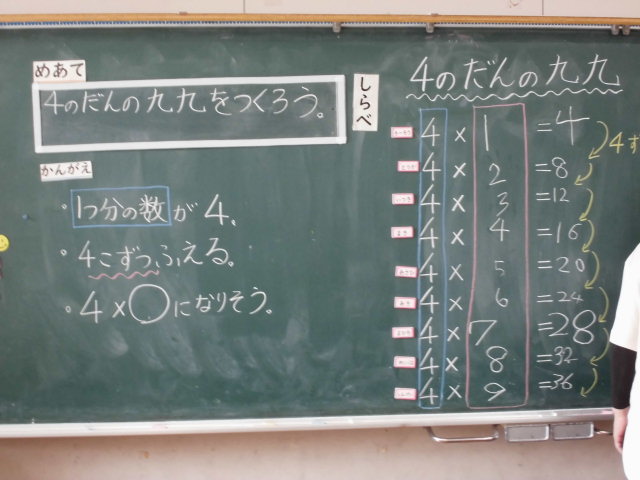 めあて
4のだんの九九をつくろう。
かんがえ
・1つ分の数が4、
・4こずつ、ふえる。
・4×○になりそう。
しらべ
4のだんの九九
4×1=4
4×2=8
4×3=12
4×4=16
4×5=20
4×6=24
4×7=28
4×8=32
4×9=36
4ず